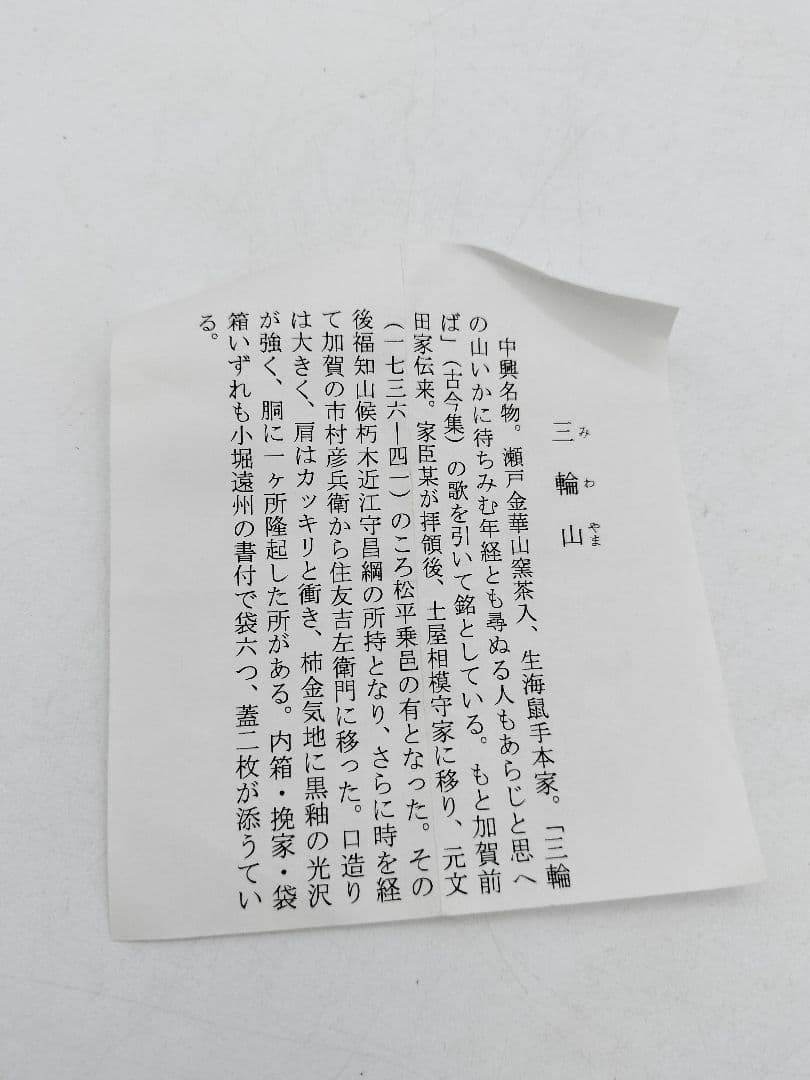 三輪山
みわやま
中興名物。瀬戸金華山窯茶入、生海鼠手本家。「三輪
の山いかに待ちみむ年経とも尋ぬる人もあらじと思へ
ば」(古今集)の歌を引いて銘としている。もと加賀前
田家伝来。家臣某が拝領後、土屋相模守家に移り、元文
(一七三六—四一)のころ松平乗邑の有となった。その
後福知山候朽木近江守昌綱の所持となり、さらに時を経
て加賀の市村彦兵衛から住友吉左衛門に移った。口造り
は大きく、肩はカッキリと衝き、柿金気地に黒釉の光沢
が強く、胴に一ヶ所隆起した所がある。内箱・挽家・袋
箱いずれも小堀遠州の書付で袋六つ、蓋二枚が添うてい
る。